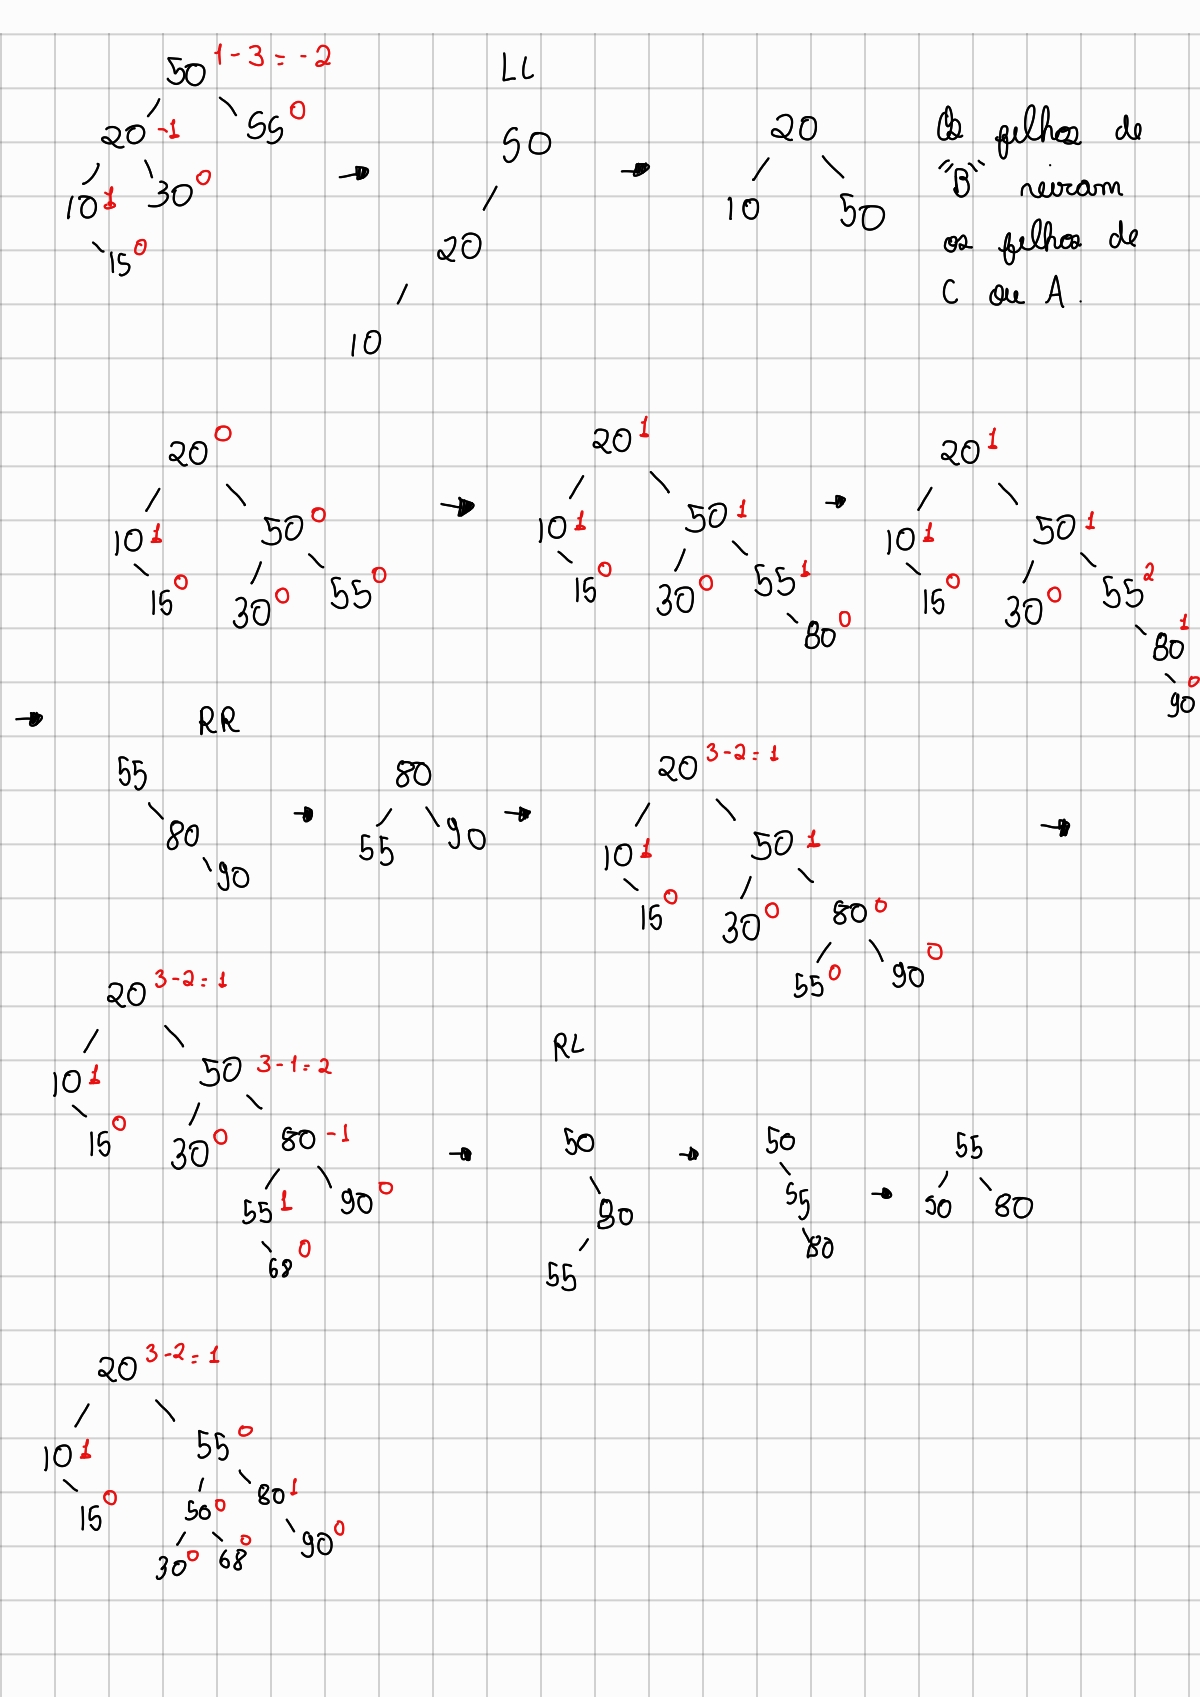 50 1-3=-2
20 -1 55 0
10 1 30 0
15 0
LL
50
20
10
20
10 50
Os filhos de
"B" reiram
os filhos de
C ou A.
20 0
10 1 50 0
15 0 30 0 55 0
20 1
10 1 50 1
15 0 30 0 55 1
80 0
20 1
10 1 50 1
15 0 30 0 55 2
80 1
90 0
RR
55
80
90
80
55 90
20 3-2=1
10 1 50 1
15 0 30 0 80 0
55 0 90 0
20 3-2=1
10 1 50 3-1=2
15 0 30 0 80 -1
55 1 90 0
68 0
RL
50
80
55
50
55
80
55
50 80
20 3-2=1
10 1 55 0
15 0 50 0 80 1
30 0 68 0 90 0